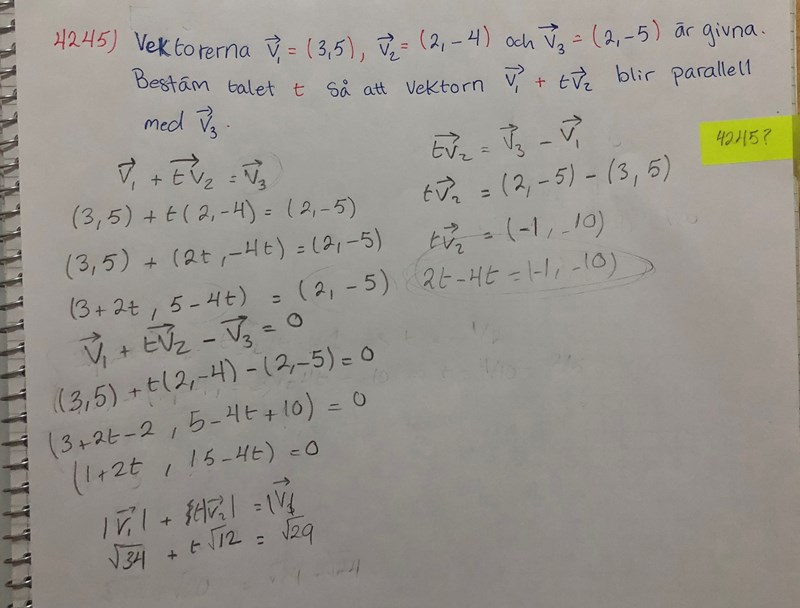 4245) Vektorerna v⃗₁ = (3,5), v⃗₂ = (2,-4) och v⃗₃ = (2,-5) är givna.
Bestäm talet t så att vektorn v⃗₁ + tv⃗₂ blir parallell
med v⃗₃.
4245?
v⃗₁ + tv⃗₂ = v⃗₃
(3,5) + t(2,-4) = (2,-5)
(3,5) + (2t,-4t) = (2,-5)
(3+2t, 5-4t) = (2,-5)
v⃗₁ + tv⃗₂ - v⃗₃ = 0
(3,5) + t(2,-4) - (2,-5) = 0
(3+2t-2, 5-4t+10) = 0
(1+2t, 15-4t) = 0
|v⃗₁| + t|v⃗₂| = |v⃗₃|
√34 + t√12 = √29
tv⃗₂ = v⃗₃ - v⃗₁
tv⃗₂ = (2,-5) - (3,5)
tv⃗₂ = (-1,-10)
2t-4t = (-1,-10)